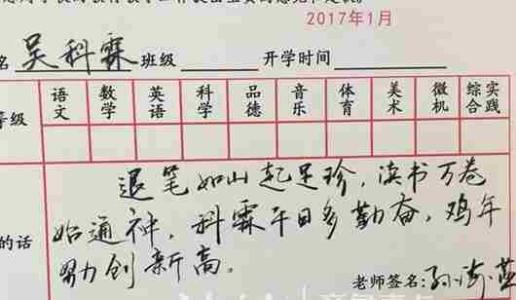 2017年1月
名 吴科霖 班级 开学时间
等级 语文 数学 英语 科学 品德 音乐 体育 美术 微机 综合实践
退笔如山起足珍，读书万卷
始通神，科霖平日多勤奋，鸡年
的话
努力创新高。
老师签名：